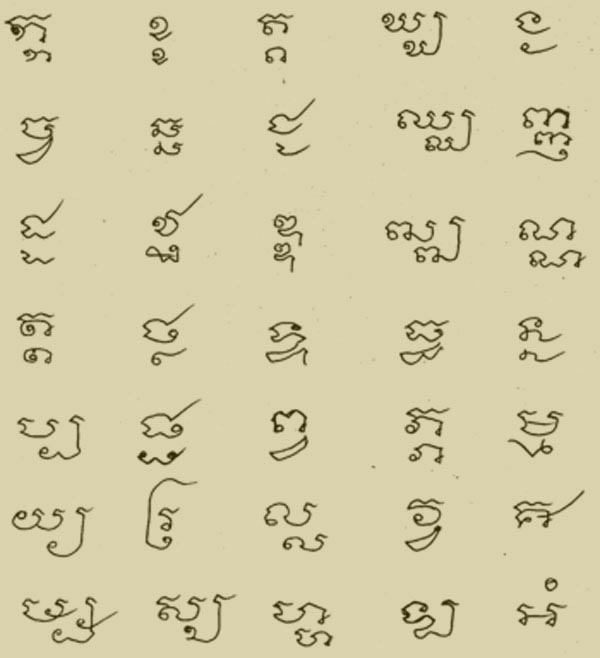 ក្ក ខ្ខ គ្គ ឃ្ឃ ង្ង
ច្ច ឆ្ឆ ជ្ជ ឈ្ឈ ញ្ញ
ដ្ដ ឋ្ឋ ឌ្ឌ ឍ្ឍ ណ្ណ
ត្ត ថ្ថ ទ្ទ ធ្ធ ន្ន
ប្ប ផ្ផ ព្ព ភ្ភ ម្ម
យ្យ រ្រ ល្ល វ្វ ឝ
ឞ្ឞ ស្ស ហ្ហ ឡ អំ